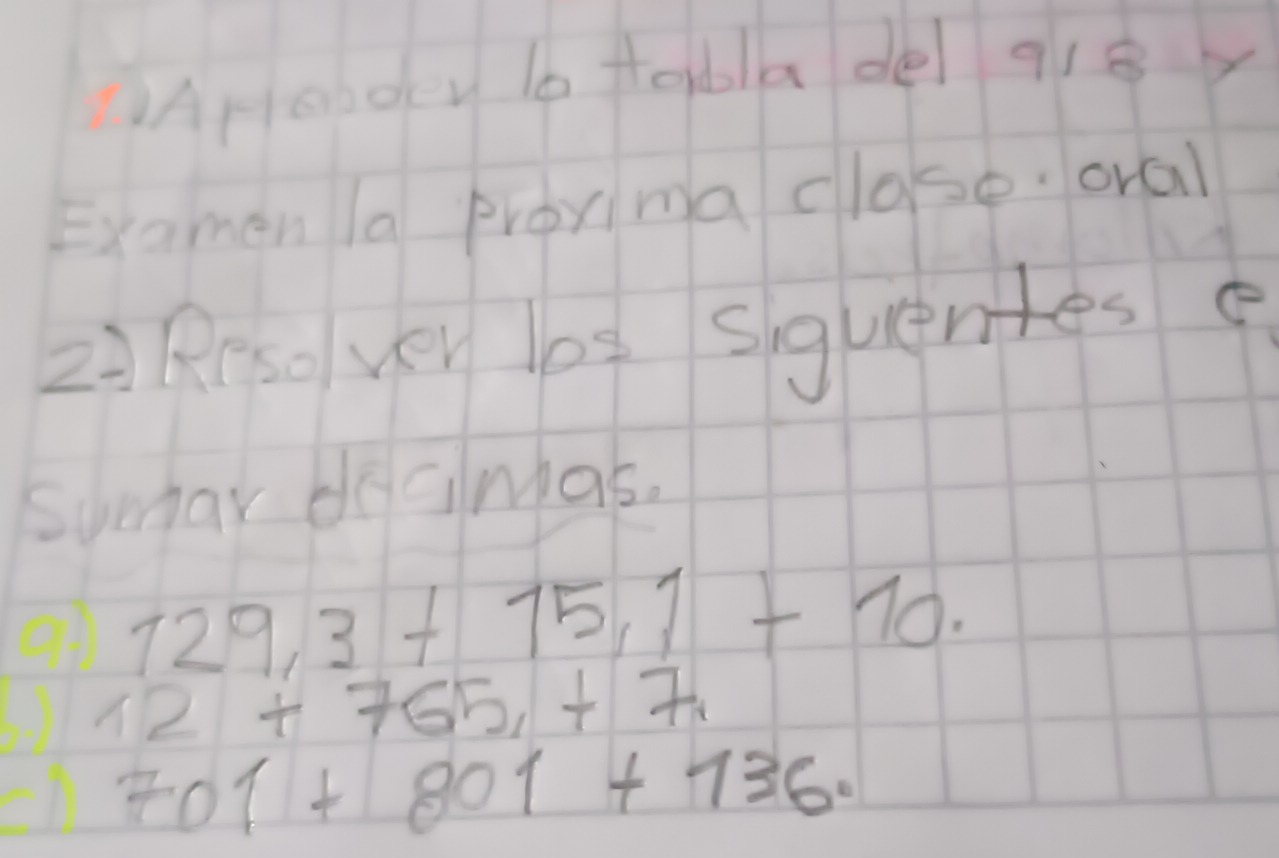 1.) Aprender la tabla del 9 / 8 y
Examen la próxima clase. oral
2-) Resolver los siguientes e
sumar décimas.
a.) 129,3 + 15,1 + 10.
b.) 12 + 765, + 7.
c) 701 + 801 + 136.